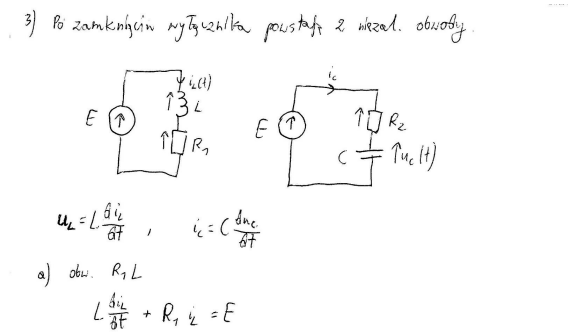 3) Po zamknięciu wyłącznika powstają 2 niezal. obwody.
i_L(t)
E
L
R_1
i_c
E
R_2
C
u_c(t)
u_L = L di_L/dt , i_c = C du_c/dt
a) obw. R_1 L
L di_L/dt + R_1 i_L = E